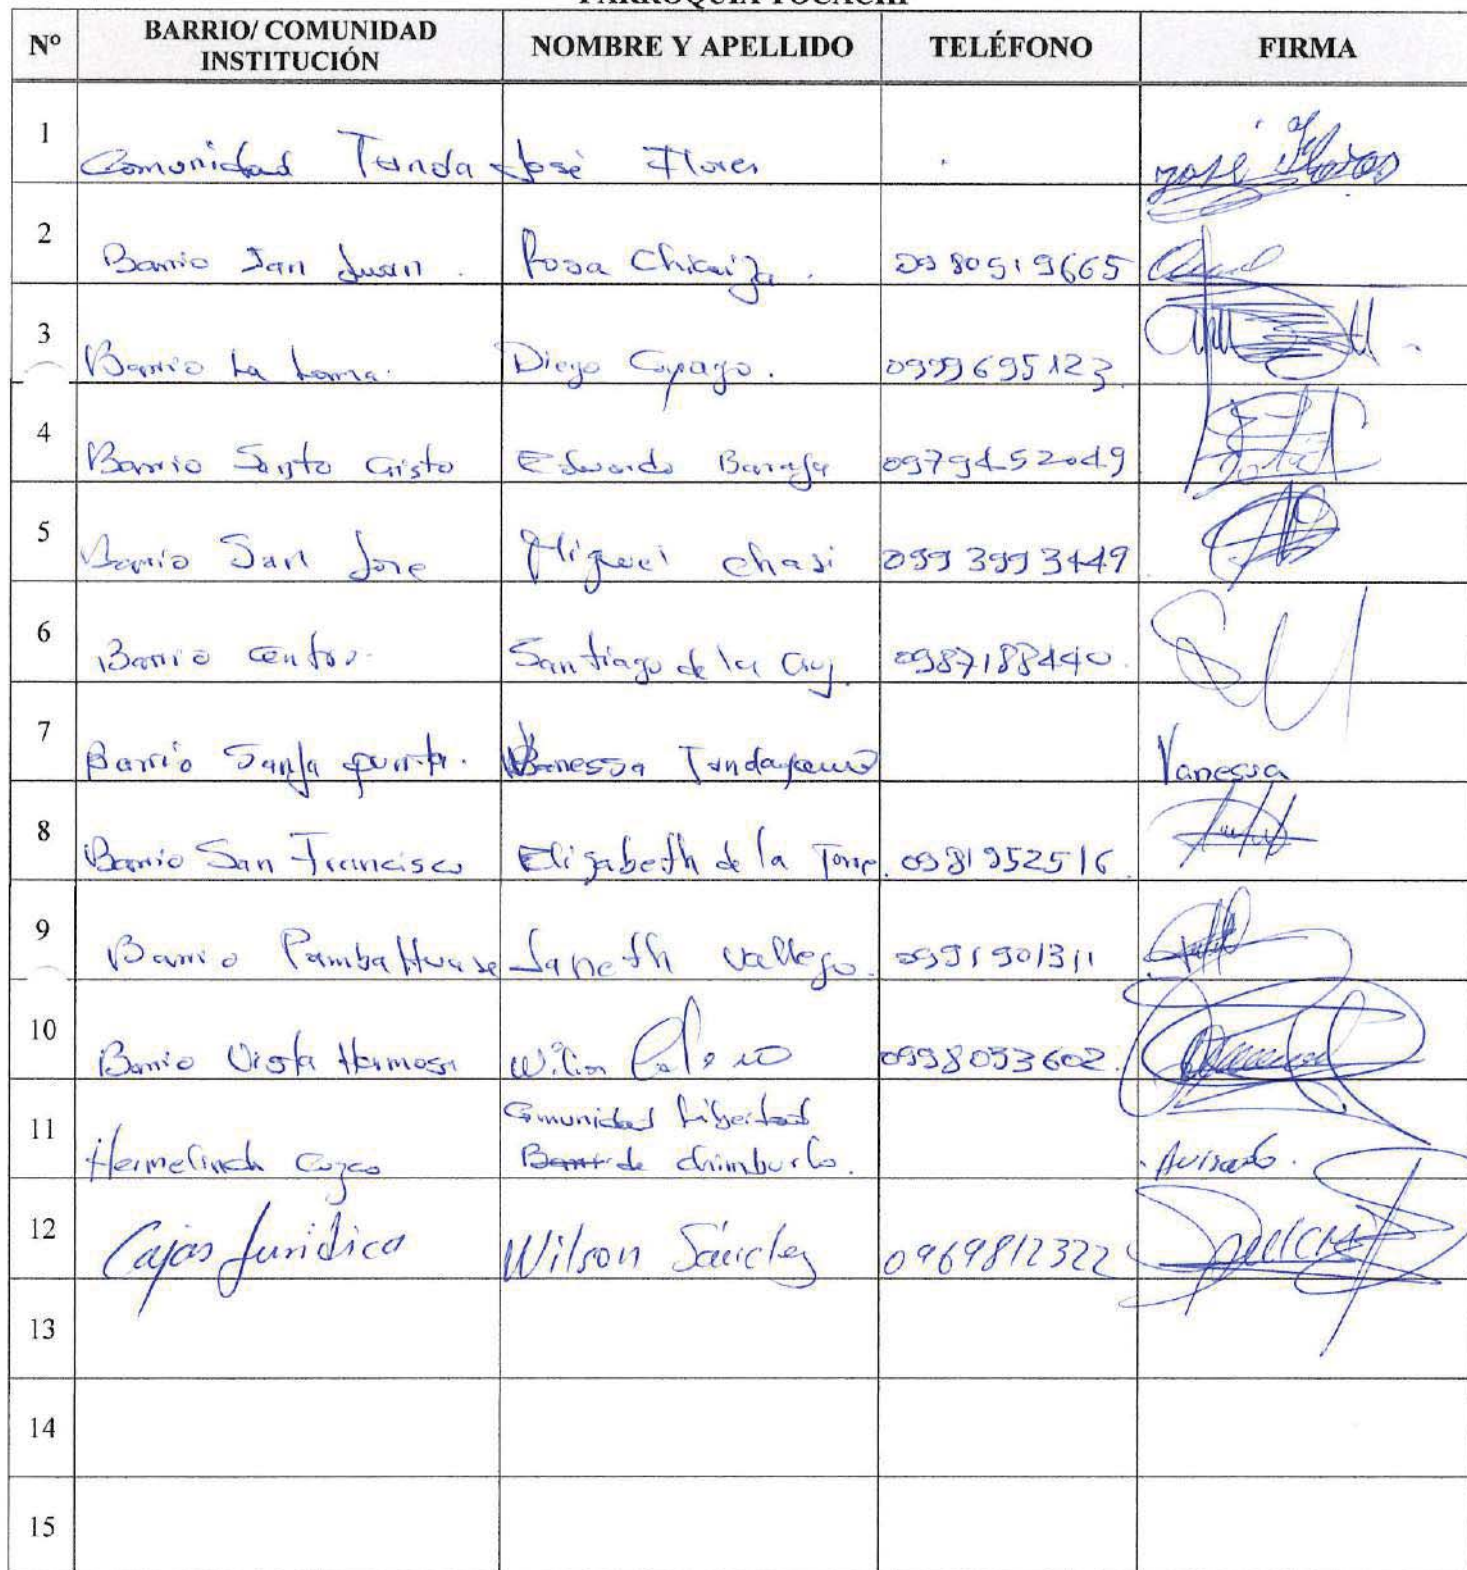 PARROQUIA TOCACHI
Nº BARRIO/ COMUNIDAD INSTITUCIÓN NOMBRE Y APELLIDO TELÉFONO FIRMA
1 Comunidad Tanda José Flores José Flores
2 Barrio San Juan. Rosa Chicaiza. 0980519665
3 Barrio La Loma. Diego 0999695123.
4 Barrio Santo Cristo Eduardo Baraja 0979452049
5 Barrio San Jose Miguel Chasi 0993993449
6 Barrio Centro. Santiago de la Cruz. 0987188440.
7 Barrio Vanessa Vanessa
8 Barrio San Francisco Elizabeth de la Torre. 0981952516.
9 Barrio Pambahuase Janeth Vallejo. 0991901311
10 Barrio Vista Hermosa Wilson 0998093602.
11 Comunidad Libertad
de Chimburlo. Avisado.
12 Cajas Juridica Wilson Sánchez 0969812322
13
14
15